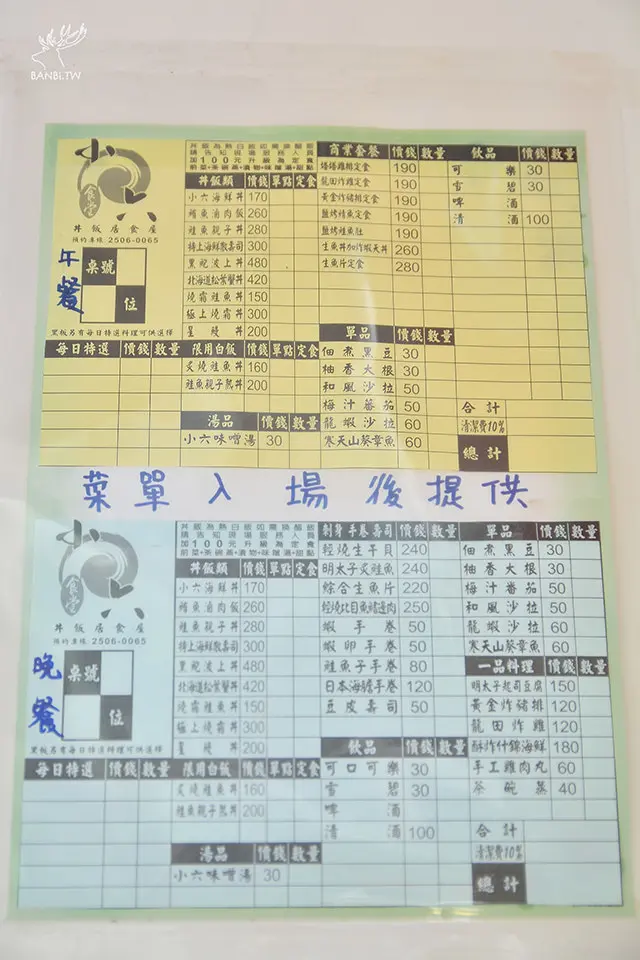 BANBI.TW
小六
食堂
丼飯居食屋
預約專線 2506-0065
午餐
桌號
位
黑板另有每日特選料理可供選擇
丼飯為熱白飯如需換醋飯
請告知現場服務人員
加100元升級為定食
前菜•茶碗蒸•漬物•味噌湯•甜點
丼飯類 價錢 單點 定食
小六海鮮丼 170
鮭魚滷肉飯 260
鮭魚親子丼 280
特上海鮮散壽司 300
黑視波上丼 480
北海道松葉蟹丼 420
燒霜鮭魚丼 150
極上燒霜丼 300
星鰻丼 200
每日特選 價錢 數量
限用白飯 價錢 單點 定食
炙燒鮭魚丼 160
鮭魚親子熟丼 200
湯品 價錢 數量
小六味噌湯 30
商業套餐 價錢 數量
雞排定食 190
龍田炸雞定食 190
黃金炸豬排定食 190
鹽烤鯖魚定食 190
鹽烤鮭魚肚 190
生魚丼加炸蝦天丼 260
生魚片定食 280
單品 價錢 數量
佃煮黑豆 30
柚香大根 30
和風沙拉 50
梅汁蕃茄 50
龍蝦沙拉 60
寒天山葵章魚 60
飲品 價錢 數量
可樂 30
雪碧 30
啤酒
清酒 100
合計
清潔費10%
總計
菜單入場後提供
小六
食堂
丼飯居食屋
預約專線 2506-0065
晚餐
桌號
位
黑板另有每日特選料理可供選擇
丼飯為熱白飯如需換醋飯
請告知現場服務人員
加100元升級為定食
前菜•茶碗蒸•漬物•味噌湯•甜點
丼飯類 價錢 單點 定食
小六海鮮丼 170
鮭魚滷肉飯 260
鮭魚親子丼 280
特上海鮮散壽司 300
黑視波上丼 480
北海道松葉蟹丼 420
燒霜鮭魚丼 150
極上燒霜丼 300
星鰻丼 200
每日特選 價錢 數量
限用白飯 價錢 單點 定食
炙燒鮭魚丼 160
鮭魚親子熟丼 200
湯品 價錢 數量
小六味噌湯 30
刺身手卷壽司 價錢 數量
輕燒生干貝 240
明太子炙鮭魚 240
綜合生魚片 220
輕燒比目魚鰭邊肉 250
蝦手卷 50
蝦卵手卷 50
鮭魚子手卷 80
日本海膽手卷 120
豆皮壽司 50
飲品 價錢 數量
可口可樂 30
雪碧 30
啤酒
清酒 100
單品 價錢 數量
佃煮黑豆 30
柚香大根 30
梅汁蕃茄 50
和風沙拉 50
龍蝦沙拉 60
寒天山葵章魚 60
一品料理 價錢 數量
明太子起司豆腐 150
黃金炸豬排 120
龍田炸雞 120
酥炸什錦海鮮 180
手工雞肉丸 60
茶碗蒸 40
合計
清潔費10%
總計